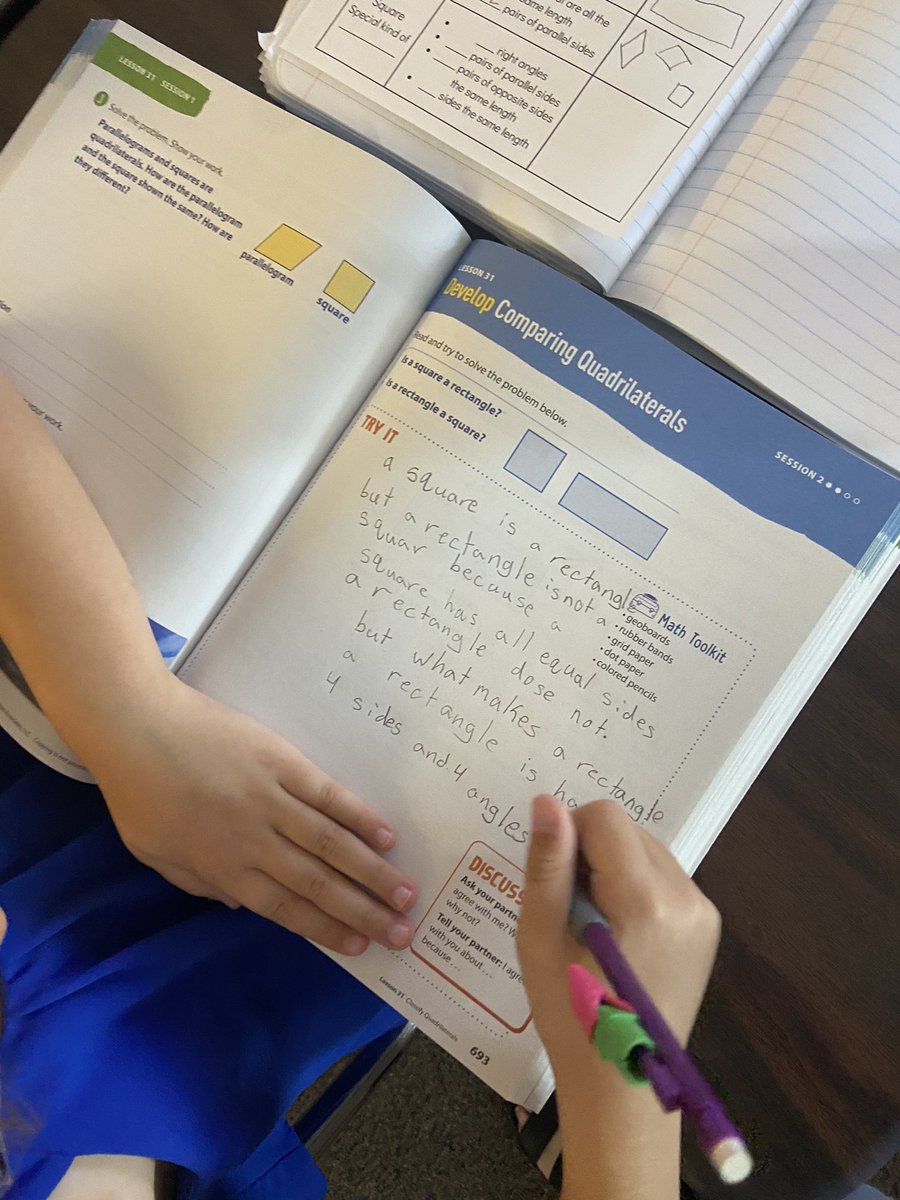 are all the
same length
pairs of parallel sides
Square
Special kind of
right angles
pairs of parallel sides
pairs of opposite sides
the same length
sides the same length
LESSON 31 SESSION 1
9 Solve the problem. Show your work.
Parallelograms and squares are
quadrilaterals. How are the parallelogram
and the square shown the same? How are
they different?
parallelogram
square
your work.
LESSON 31
Develop Comparing Quadrilaterals
SESSION 2
Read and try to solve the problem below.
Is a square a rectangle?
Is a rectangle a square?
TRY IT
a square is a rectangle
but a rectangle is not a
squar because a
square has all equal sides
a rectangle dose not.
but what makes a rectangle
a rectangle is
4 sides and 4 angles
Math Toolkit
• geoboards
• rubber bands
• grid paper
• dot paper
• colored pencils
DISCUSS
Ask your
agree with me?
why not?
Tell your partner: I
with you about ...
because ...
Lesson 31 Classify Quadrilaterals
693